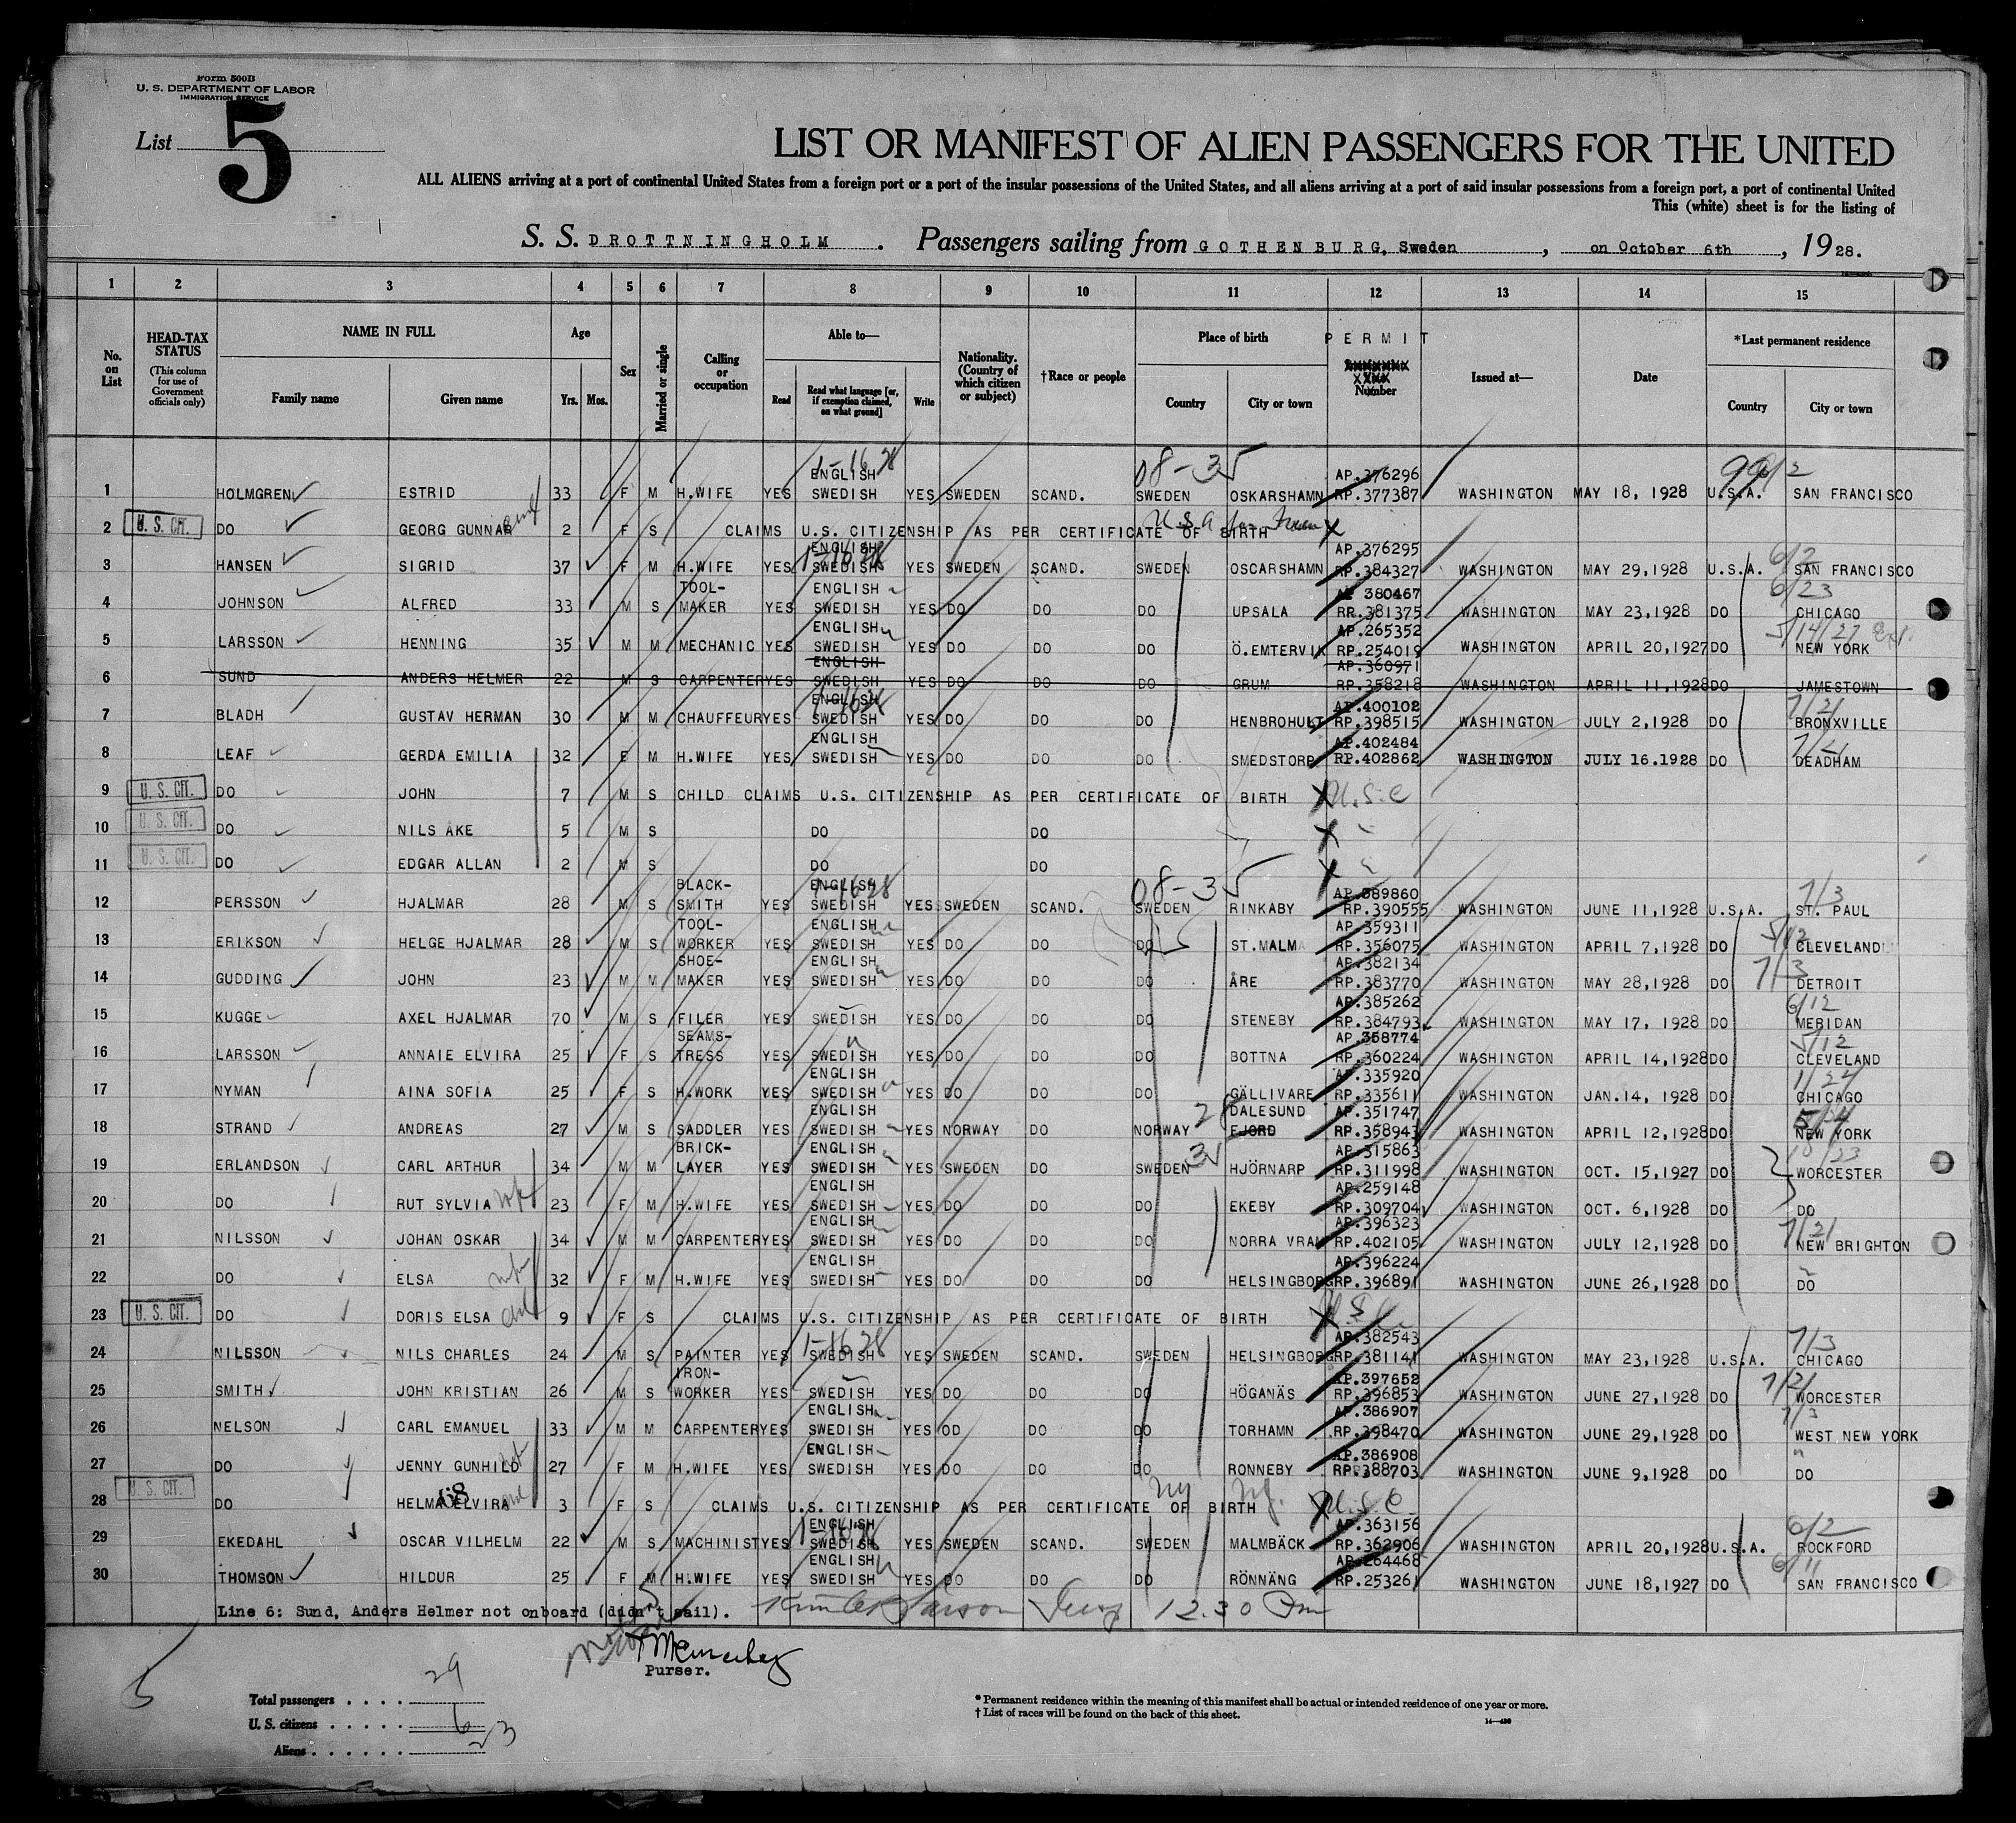 Form 500B
U. S. DEPARTMENT OF LABOR
IMMIGRATION SERVICE
List 5
LIST OR MANIFEST OF ALIEN PASSENGERS FOR THE UNITED
ALL ALIENS arriving at a port of continental United States from a foreign port or a port of the insular possessions of the United States, and all aliens arriving at a port of said insular possessions from a foreign port, a port of continental United
This (white) sheet is for the listing of
S. S. DROTTNINGHOLM . Passengers sailing from GOTHENBURG, Sweden , on October 6th , 1928.
1 2 3 4 5 6 7 8 9 10 11 12 13 14 15
No. on List
HEAD-TAX STATUS
(This column for use of Government officials only)
NAME IN FULL
Family name Given name
Age
Yrs. Mos.
Sex
Married or single
Calling or occupation
Able to—
Read Read what language [or, if exemption claimed, on what ground] Write
Nationality. (Country of which citizen or subject)
†Race or people
Place of birth
Country City or town
PERMIT
Number
Issued at—
Date
*Last permanent residence
Country City or town
1-1628 08-35
ENGLISH AP.376296
1 HOLMGREN ESTRID 33 F M H.WIFE YES SWEDISH YES SWEDEN SCAND. SWEDEN OSKARSHAMN RP.377387 WASHINGTON MAY 18, 1928 U.S.A. SAN FRANCISCO
2 U. S. CIT. DO GEORG GUNNAR 2 F S CLAIMS U.S. CITIZENSHIP AS PER CERTIFICATE OF BIRTH
ENGLISH AP.376295 6/2
3 HANSEN SIGRID 37 F M H.WIFE YES SWEDISH YES SWEDEN SCAND. SWEDEN OSCARSHAMN RP.384327 WASHINGTON MAY 29,1928 U.S.A. SAN FRANCISCO
TOOL- ENGLISH AP 380467 6/23
4 JOHNSON ALFRED 33 M S MAKER YES SWEDISH YES DO DO DO UPSALA RP.381375 WASHINGTON MAY 23,1928 DO CHICAGO
ENGLISH AP.265352 5/14/27
5 LARSSON HENNING 35 M M MECHANIC YES SWEDISH YES DO DO DO Ö.EMTERVIK RP.254019 WASHINGTON APRIL 20,1927 DO NEW YORK
ENGLISH AP.360971
6 SUND ANDERS HELMER 22 M S CARPENTER YES SWEDISH YES DO DO DO GRUM RP.358218 WASHINGTON APRIL 11,1928 DO JAMESTOWN
ENGLISH AP.400102 7/21
7 BLADH GUSTAV HERMAN 30 M M CHAUFFEUR YES SWEDISH YES DO DO DO HENBROHULT RP.398515 WASHINGTON JULY 2,1928 DO BRONXVILLE
ENGLISH AP.402484
8 LEAF GERDA EMILIA 32 F M H.WIFE YES SWEDISH YES DO DO DO SMEDSTORP RP.402862 WASHINGTON JULY 16.1928 DO DEADHAM
9 U. S. CIT. DO JOHN 7 M S CHILD CLAIMS U.S. CITIZENSHIP AS PER CERTIFICATE OF BIRTH U.S.C
10 U. S. CIT. DO NILS ÅKE 5 M S DO DO
11 U. S. CIT. DO EDGAR ALLAN 2 M S DO DO
08-35
BLACK- ENGLISH AP.389860 7/3
12 PERSSON HJALMAR 28 M S SMITH YES SWEDISH YES SWEDEN SCAND. SWEDEN RINKABY RP.390555 WASHINGTON JUNE 11,1928 U.S.A. ST. PAUL
TOOL- ENGLISH AP.359311
13 ERIKSON HELGE HJALMAR 28 M S WORKER YES SWEDISH YES DO DO DO ST.MALMA RP.356075 WASHINGTON APRIL 7,1928 DO CLEVELAND
SHOE- ENGLISH AP.382134 7/3
14 GUDDING JOHN 23 M M MAKER YES SWEDISH YES DO DO DO ÅRE RP.383770 WASHINGTON MAY 28,1928 DO DETROIT
AP.385262 6/12
15 KUGGE AXEL HJALMAR 70 M S FILER YES SWEDISH YES DO DO DO STENEBY RP.384793 WASHINGTON MAY 17, 1928 DO MERIDAN
SEAMS- AP.358774 5/12
16 LARSSON ANNAIE ELVIRA 25 F S TRESS YES SWEDISH YES DO DO DO BOTTNA RP.360224 WASHINGTON APRIL 14,1928 DO CLEVELAND
ENGLISH AP.335920 1/24
17 NYMAN AINA SOFIA 25 F S H.WORK YES SWEDISH YES DO DO DO GÄLLIVARE RP.335611 WASHINGTON JAN.14, 1928 DO CHICAGO
ENGLISH 28 DALESUND AP.351747
18 STRAND ANDREAS 27 M S SADDLER YES SWEDISH YES NORWAY DO NORWAY FJORD RP.358943 WASHINGTON APRIL 12,1928 DO NEW YORK
BRICK- ENGLISH AP.315863 10/23
19 ERLANDSON CARL ARTHUR 34 M M LAYER YES SWEDISH YES SWEDEN DO SWEDEN HJÖRNARP RP.311998 WASHINGTON OCT. 15,1927 DO WORCESTER
ENGLISH AP.259148
20 DO RUT SYLVIA wife 23 F M H.WIFE YES SWEDISH YES DO DO DO EKEBY RP.309704 WASHINGTON OCT. 6,1928 DO DO
ENGLISH AP.396323 7/21
21 NILSSON JOHAN OSKAR 34 M M CARPENTER YES SWEDISH YES DO DO DO NORRA VRAM RP.402105 WASHINGTON JULY 12,1928 DO NEW BRIGHTON
ENGLISH AP.396224
22 DO ELSA wife 32 F M H.WIFE YES SWEDISH YES DO DO DO HELSINGBORG RP.396891 WASHINGTON JUNE 26,1928 DO DO
23 U. S. CIT. DO DORIS ELSA 9 F S CLAIMS U.S. CITIZENSHIP AS PER CERTIFICATE OF BIRTH
1-1628 AP.382543 7/3
24 NILSSON NILS CHARLES 24 M S PAINTER YES SWEDISH YES SWEDEN SCAND. SWEDEN HELSINGBORG RP.381141 WASHINGTON MAY 23,1928 U.S.A. CHICAGO
IRON- AP.397652 7/21
25 SMITH JOHN KRISTIAN 26 M S WORKER YES SWEDISH YES DO DO DO HÖGANÄS RP.396853 WASHINGTON JUNE 27,1928 DO WORCESTER
ENGLISH AP.386907 7/3
26 NELSON CARL EMANUEL 33 M M CARPENTER YES SWEDISH YES OD DO DO TORHAMN RP.398470 WASHINGTON JUNE 29,1928 DO WEST NEW YORK
ENGLISH AP.386908
27 DO JENNY GUNHILD 27 F M H.WIFE YES SWEDISH YES DO DO DO RONNEBY RP.388703 WASHINGTON JUNE 9,1928 DO DO
28 U. S. CIT. DO HELMA ELVIRA 3 F S CLAIMS U.S. CITIZENSHIP AS PER CERTIFICATE OF BIRTH U.S.C.
ENGLISH AP.363156 6/2
29 EKEDAHL OSCAR VILHELM 22 M S MACHINIST YES SWEDISH YES SWEDEN SCAND. SWEDEN MALMBÄCK RP.362906 WASHINGTON APRIL 20,1928 U.S.A. ROCKFORD
ENGLISH AP.264468 6/11
30 THOMSON HILDUR 25 F M H.WIFE YES SWEDISH YES DO DO DO RÖNNÄNG RP.253261 WASHINGTON JUNE 18,1927 DO SAN FRANCISCO
Line 6: Sund, Anders Helmer not onboard (didn't sail). 12.30 Pm
Purser.
Total passengers . . . . 29
U. S. citizens . . . . . 6
Aliens . . . . . . 23
* Permanent residence within the meaning of this manifest shall be actual or intended residence of one year or more.
† List of races will be found on the back of this sheet.